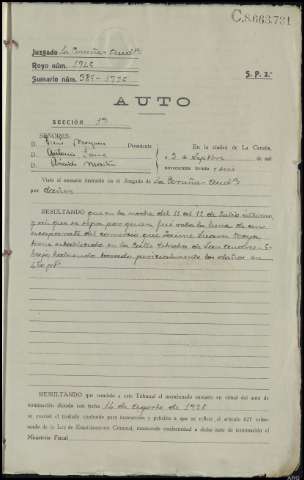 C.8.663.731
Juzgado La Coruña-Aud
Royo núm. 1926
Sumario núm. 385-1936
S. P. 2.ª
AUTO
SECCIÓN 1ª
SEÑORES:
D. Presidente
D. Antonio
D. Ricardo
En la ciudad de La Coruña,
a 2 de Septbre de mil
novecientos treinta y seis
Visto el sumario instruído en el Juzgado de La Coruña-Aud
por daños
RESULTANDO que en la noche del 11 al 12 de Julio último,
y sin que se sepa por quien, fue rota la luna de un
escaparate del comercio que Jaime
tiene establecido en la calle Estrecha de San Andrés-5-
bajo habiendo tasado pericialmente los daños en
450 pts
RESULTANDO que remitido a este Tribunal el mencionado sumario en virtud del auto de
terminación dictado con fecha 14 de Agosto de 1936
se, evacuó el traslado conferido para instrucción y petición a que se refiere, el artículo 627 reformado
de la Ley de Enjuiciamiento Criminal, mostrando conformidad a dicho auto de terminación el
Ministerio Fiscal.